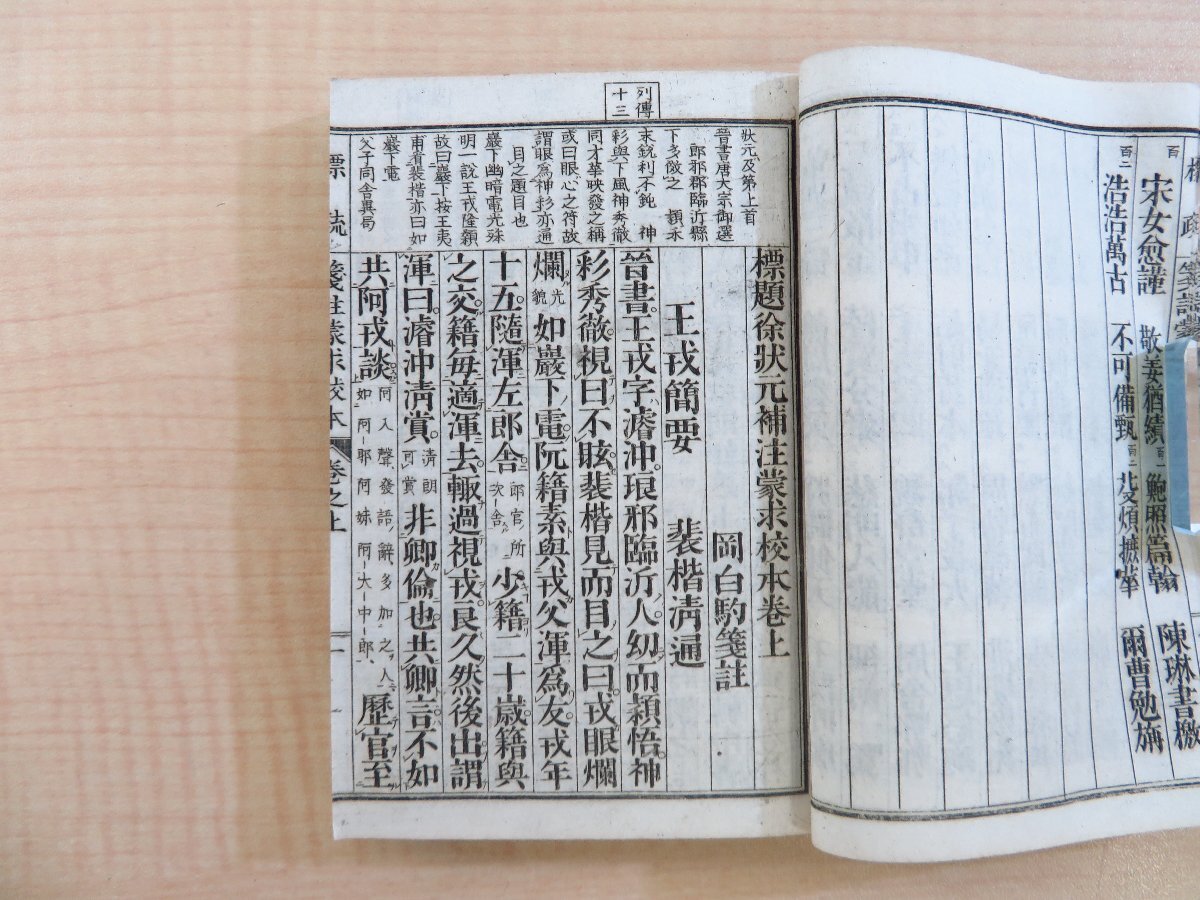 標 疏 箋註蒙
百 宋女愈謹 敬姜猶績 百一 鮑照篇翰 陳琳書檄
百二 浩浩萬古 不可備甄 百三 芟煩摭華 爾曹勉旃
列傳
十三
狀元及第上首
晉書唐大宗御選
郎邪郡臨沂縣
下多倣之 穎禾
末銳利不鈍 神
彩與下風神秀徹
同才華映發之稱
或曰眼心之符故
謂眼爲神彩亦通
目之題目也
巖下幽暗電光殊
明一說王戎隆顙
故曰巖下按王夷
甫看裴楷亦曰如
巖下電
父子同舍異局
標題徐狀元補注蒙求校本卷上
岡白駒箋註
王戎簡要 裴楷淸通
晉書王戎字濬沖琅邪臨沂人幼而穎悟神
彩秀徹視日不眩裴楷見而目之曰戎眼爛
爛光貌如巖下電阮籍素與戎父渾爲友戎年
十五隨渾在郎舍郎官所次舍少籍二十歲籍與
之交籍每適渾去輙過視戎良久然後出謂
渾曰濬沖淸賞淸朗可賞非卿倫也共卿言不如
共阿戎談阿入聲發語辭多加之人如阿耶阿妹阿大中郎歷官至
標 疏 箋註蒙求校本 卷之上 一